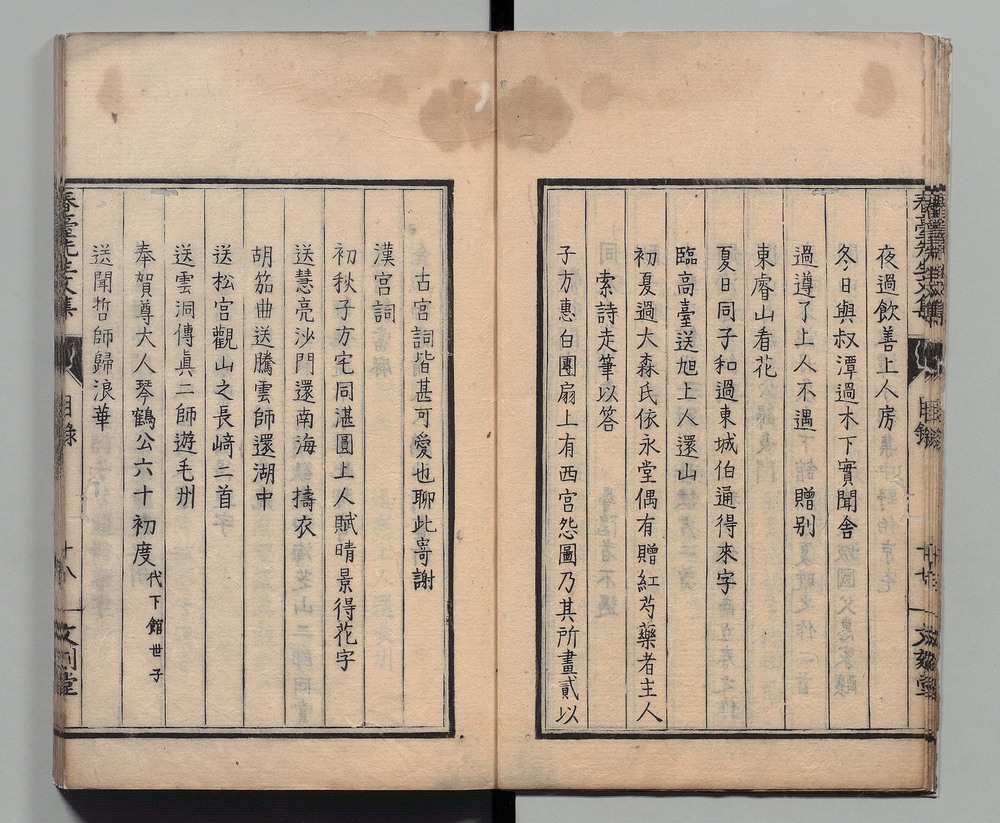 夜過飲善上人房
冬日與叔潭過木下實聞舍
過遵了上人不遇　贈别
東睿山看花
夏日同子和過東城伯通得來字
臨高臺送旭上人還山
初夏過大森氏依永堂偶有贈紅芍藥者主人
索詩走筆以答
子方惠白團扇上有西宮怨圖乃其所畫貳以
古宮詞皆甚可愛也聊此寄謝
漢宮詞
初秋子方宅同湛圓上人賦晴景得花字
送慧亮沙門還南海　擣衣
胡笳曲送騰雲師還湖中
送松宮觀山之長﨑二首
送雲洞傳眞二師遊毛州
奉賀尊大人琴鶴公六十初度代下館世子
送聞哲師歸浪華
春臺先生文集
目錄
十八
文刻堂